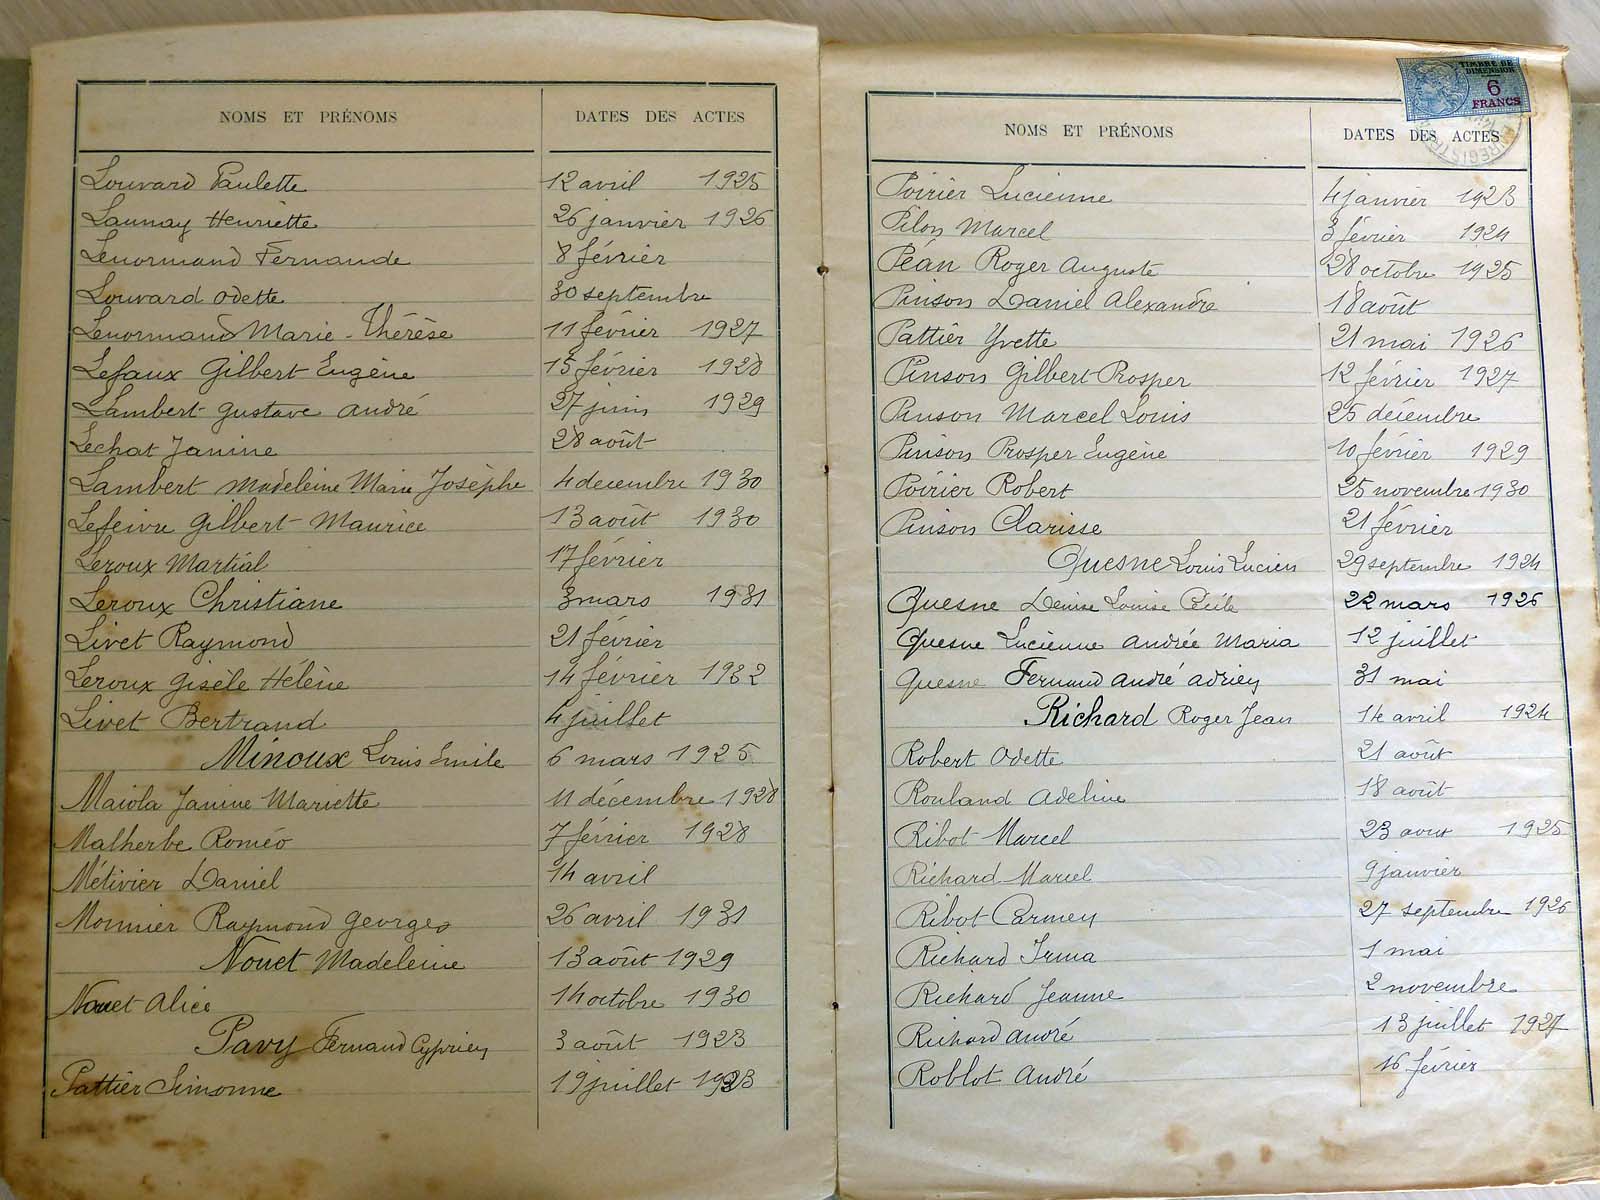 NOMS ET PRÉNOMS DATES DES ACTES
Louvard Paulette 12 avril 1925
Launay Henriette 26 janvier 1926
Lenormand Fernande 8 février
Louvard Odette 30 septembre
Lenormand Marie-Thérèse 11 février 1927
Lefaux Gilbert Eugène 15 février 1928
Lambert Gustave André 27 juin 1929
Lechat Janine 28 août
Lambert Madeleine Marie Josèphe 4 decembre 1930
Lefeivre Gilbert Maurice 13 août 1930
Leroux Martial 17 février
Leroux Christiane 3 mars 1931
Livet Raymond 21 février
Leroux Gisèle Hélène 14 février 1932
Livet Bertrand 4 juillet
Minoux Louis Emile 6 mars 1925
Maiola Janine Mariette 11 décembre 1928
Malherbe Roméo 7 février 1928
Métivier Daniel 14 avril
Monnier Raymond Georges 26 avril 1931
Nouet Madeleine 13 août 1929
Nouet Alice 14 octobre 1930
Pavy Fernand Cyprien 3 août 1923
Pattier Simonne 19 juillet 1923
TIMBRE DE
DIMENSION
6
FRANCS
NOMS ET PRÉNOMS DATES DES ACTES
Poirier Lucienne 4 janvier 1923
Pilon Marcel 3 février 1924
Péan Roger Auguste 28 octobre 1925
Pinson Daniel Alexandre 18 août
Pattier Yvette 21 mai 1926
Pinson Gilbert Prosper 12 février 1927
Pinson Marcel Louis 25 décembre
Pinson Prosper Eugène 10 février 1929
Poirier Robert 25 novembre 1930
Pinson Clarisse 21 février
Quesne Louis Lucien 29 septembre 1924
Quesne Denise Louise Cécile 22 mars 1926
Quesne Lucienne Andrée Maria 12 juillet
Quesne Fernand André Adrien 31 mai
Richard Roger Jean 14 avril 1924
Robert Odette 21 août
Rouland Adeline 18 août
Ribot Marcel 23 aout 1925
Richard Marcel 9 janvier
Ribot Carmen 27 septembre 1926
Richard Irma 1 mai
Richard Jeanne 2 novembre
Richard André 13 juillet 1927
Roblot André 16 février